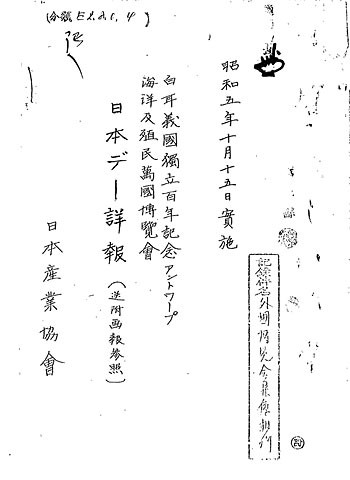 分類 E 2.2.1, 4
昭和五年十月十五日實施
白耳義國獨立百年記念アントワープ
海洋及殖民萬國博覽會
日本デー詳報（送附画報參照）
日本産業協會